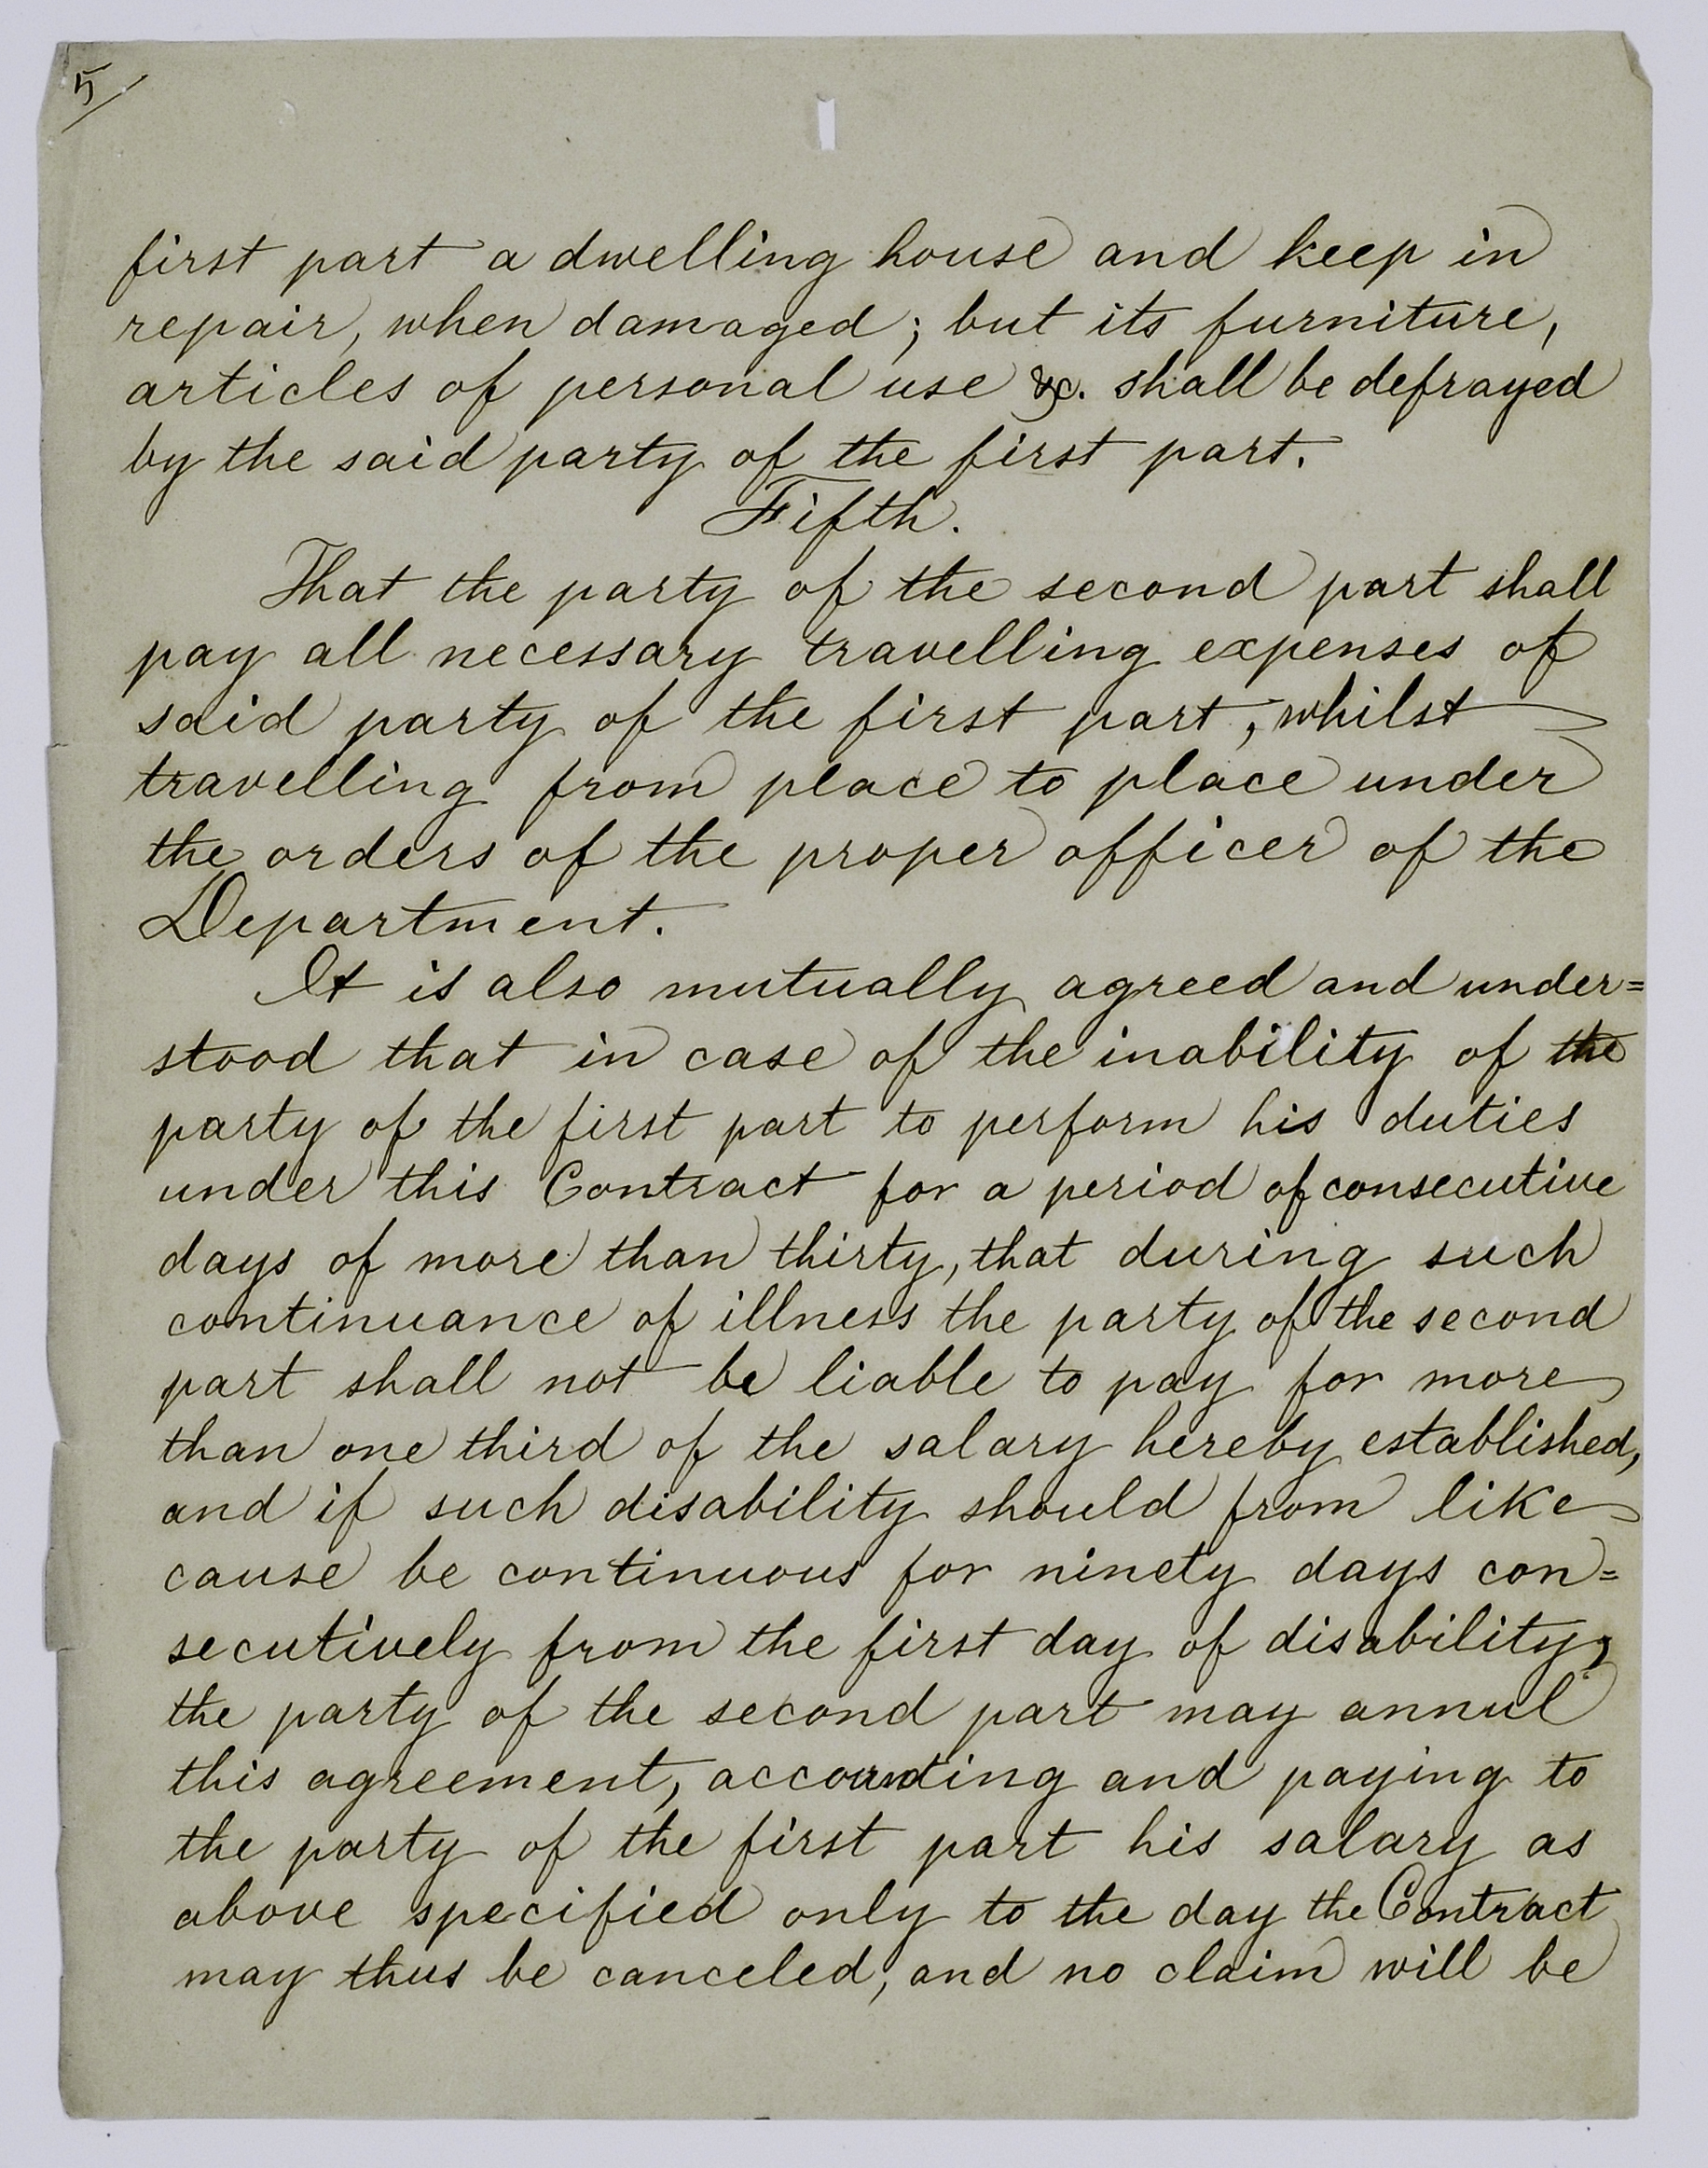 5/
first part a dwelling house and keep in
repair, when damaged; but its furniture,
articles of personal use &c. shall be defrayed
by the said party of the first part.
Fifth.
That the party of the second part shall
pay all necessary travelling expenses of
said party of the first part, whilst
travelling from place to place under
the orders of the proper officer of the
Department.
It is also mutually agreed and under=
stood that in case of the inability of the
party of the first part to perform his duties
under this Contract for a period of consecutive
days of more than thirty, that during such
continuance of illness the party of the second
part shall not be liable to pay for more
than one third of the salary hereby established,
and if such disability should from like
cause be continuous for ninety days con=
secutively from the first day of disability,
the party of the second part may annul
this agreement, accounting and paying to
the party of the first part his salary as
above specified only to the day the Contract
may thus be canceled, and no claim will be